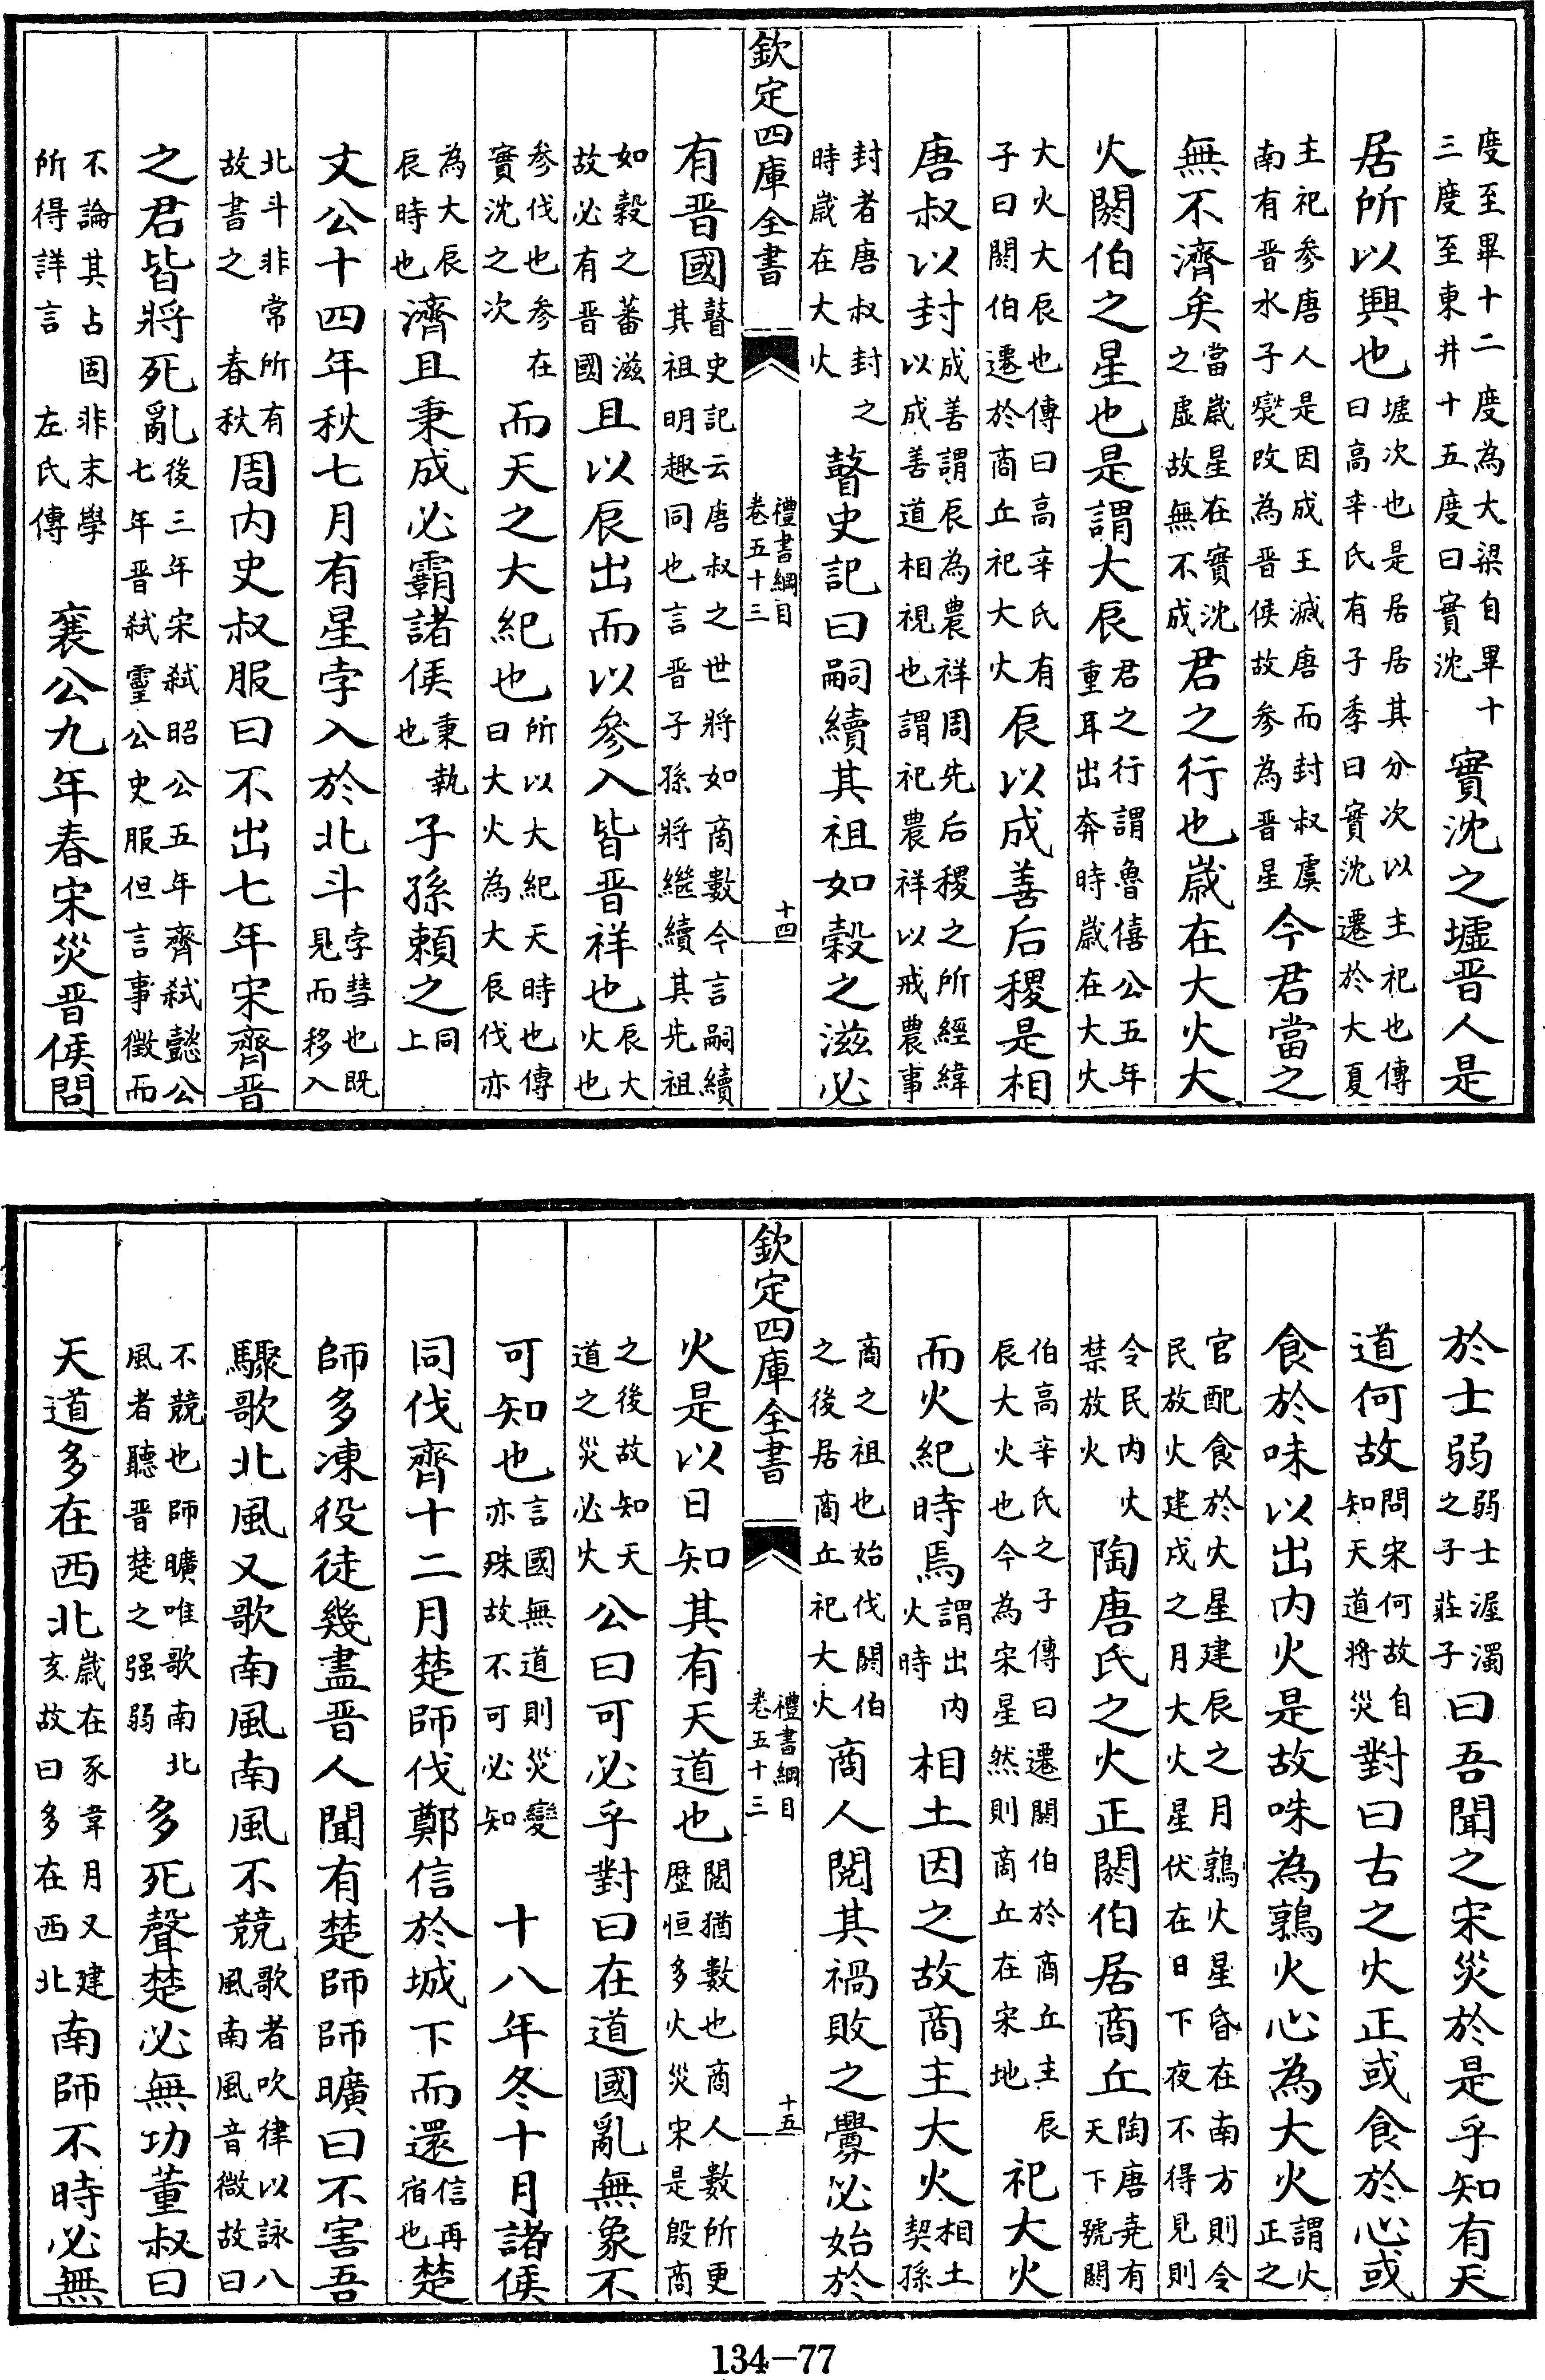 度至畢十二度為大梁自畢十三度至東井十五度曰實沈實沈之墟晋人是
居所以興也墟次也是居居其分次以主祀也傳曰高辛氏有子季曰實沈遷於大夏
主祀參唐人是因成王滅唐而封叔虞南有晋水子燮改為晋侯故參為晋星今君當之
無不濟矣當歲星在實沈之虛故無不成君之行也歲在大火大
火閼伯之星也是謂大辰君之行謂魯僖公五年重耳出奔時歲在大火
大火大辰也傳曰高辛氏有子曰閼伯遷於商丘祀大火辰以成善后稷是相
唐叔以封成善謂辰為農祥周先后稷之所經緯以成善道相視也謂祀農祥以戒農事
封者唐叔封之時歲在大火瞽史記曰嗣續其祖如穀之滋必
欽定四庫全書 禮書綱目 卷五十三 十四
有晋國瞽史記云唐叔之世將如商數今言嗣續其祖明趣同也言晋子孫將繼續其先祖
如穀之蕃滋故必有晋國且以辰出而以參入皆晋祥也辰大火也
參伐也參在實沈之次而天之大紀也所以大紀天時也傳曰大火為大辰伐亦
為大辰辰時也濟且秉成必霸諸侯秉執也子孫賴之同上
文公十四年秋七月有星孛入於北斗孛彗也既見而移入
北斗非常所有故書之 春秋周内史叔服曰不出七年宋齊晋
之君皆將死亂後三年宋弑昭公五年齊弑懿公七年晋弑靈公史服但言事徵而
不論其占固非末學所得詳言 左氏傳 襄公九年春宋災晋侯問
於士弱弱士渥濁之子莊子曰吾聞之宋災於是乎知有天
道何故問宋何故自知天道將災對曰古之火正或食於心或
食於咮以出内火是故咮為鶉火心為大火謂火正之
官配食於火星建辰之月鶉火星昏在南方則令民放火建戌之月大火星伏在日下夜不得見則
令民内火禁放火陶唐氏之火正閼伯居商丘陶唐堯有天下號閼
伯高辛氏之子傳曰遷閼伯於商丘主辰辰大火也今為宋星然則商丘在宋地祀大火
而火紀時焉謂出内火時相土因之故商主大火相土契孫
商之祖也始伐閼伯之後居商丘祀大火商人閱其禍敗之釁必始於
欽定四庫全書 禮書綱目 卷五十三 十五
火是以日知其有天道也閱猶數也商人數所更歷恒多火災宋是殷商
之後故知天道之災必火公曰可必乎對曰在道國亂無象不
可知也言國無道則災變亦殊故不可必知 十八年冬十月諸侯
同伐齊十二月楚師伐鄭信於城下而還信再宿也楚
師多凍役徒幾盡晋人聞有楚師師曠曰不害吾
驟歌北風又歌南風南風不競歌者吹律以詠八風南風音微故曰
不競也師曠唯歌南北風者聽晋楚之强弱多死聲楚必無功董叔曰
天道多在西北歲在豕韋月又建亥故曰多在西北南師不時必無
134—77